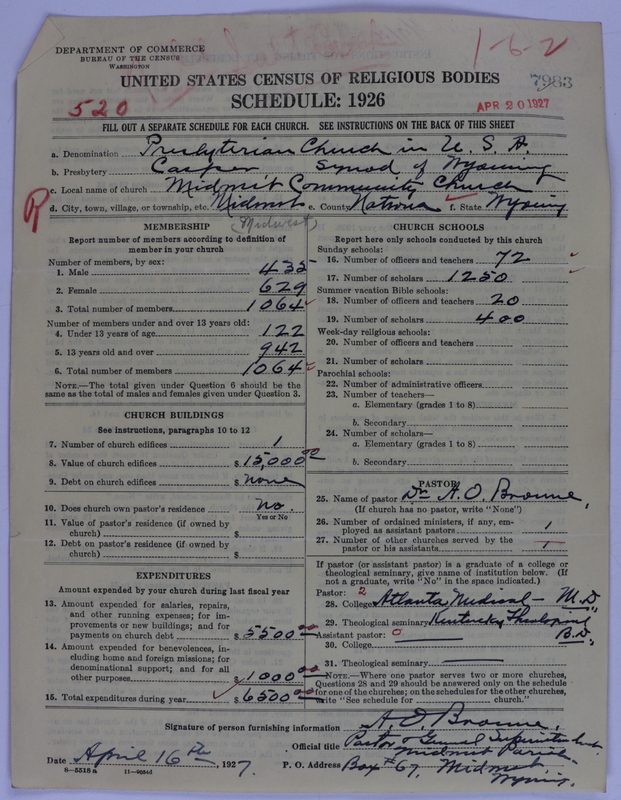 DEPARTMENT OF COMMERCE
BUREAU OF THE CENSUS
WASHINGTON
1-6-2
UNITED STATES CENSUS OF RELIGIOUS BODIES
7983
SCHEDULE: 1926
520
APR 20 1927
FILL OUT A SEPARATE SCHEDULE FOR EACH CHURCH. SEE INSTRUCTIONS ON THE BACK OF THIS SHEET
a. Denomination Presbyterian Church in U. S. A.
b. Presbytery Casper Synod of Wyoming
c. Local name of church Midwest Community Church
R
d. City, town, village, or township, etc. Midwest e. County Natrona f. State Wyoming
(Midwest)
MEMBERSHIP
Report number of members according to definition of
member in your church
Number of members, by sex:
1. Male 435
2. Female 629
3. Total number of members 1064
Number of members under and over 13 years old:
4. Under 13 years of age 122
5. 13 years old and over 942
6. Total number of members 1064
NOTE.—The total given under Question 6 should be
same as the total of males and females given under Question 3.
CHURCH BUILDINGS
See instructions, paragraphs 10 to 12
7. Number of church edifices 1
8. Value of church edifices $ 15,000 00
9. Debt on church edifices $ none
10. Does church own pastor's residence? No.
Yes or No
11. Value of pastor's residence (if owned by
church) $
12. Debt on pastor's residence (if owned by
church) $
EXPENDITURES
Amount expended by your church during last fiscal year
13. Amount expended for salaries, repairs,
and other running expenses; for im-
provements or new buildings; and for
payments on church debt $ 5500 00
14. Amount expended for benevolences, in-
cluding home and foreign missions; for
denominational support; and for all
other purposes $ 1000 00
15. Total expenditures during year $ 6500 00
CHURCH SCHOOLS
Report here only schools conducted by this church
Sunday schools:
16. Number of officers and teachers 72
17. Number of scholars 1250
Summer vacation Bible schools:
18. Number of officers and teachers 20
19. Number of scholars 400
Week-day religious schools:
20. Number of officers and teachers
21. Number of scholars
Parochial schools:
22. Number of administrative officers
23. Number of teachers—
a. Elementary (grades 1 to 8)
b. Secondary
24. Number of scholars—
a. Elementary (grades 1 to 8)
b. Secondary
PASTOR
25. Name of pastor Dr. A. O. Browne,
(If church has no pastor, write "None")
26. Number of ordained ministers, if any, em-
ployed as assistant pastors 1
27. Number of other churches served by the
pastor or his assistants 1
If pastor (or assistant pastor) is a graduate of a college or
theological seminary, give name of institution below. (If
not a graduate, write "No" in the space indicated.)
Pastor: 2
28. College Atlanta Medical — M.D.
29. Theological seminary Kentucky Theological B.D.
Assistant pastor: 0
30. College
31. Theological seminary
NOTE.—Where one pastor serves two or more churches,
Questions 28 and 29 should be answered only on the schedule
for one of the churches; on the schedules for the other churches,
write "See schedule for church."
Signature of person furnishing information A. O. Browne,
Official title Pastor & General Superintendent
Midwest Parish
Date April 16th, 1927. P. O. Address Box #67, Midwest
Wyoming.
8—5518 a